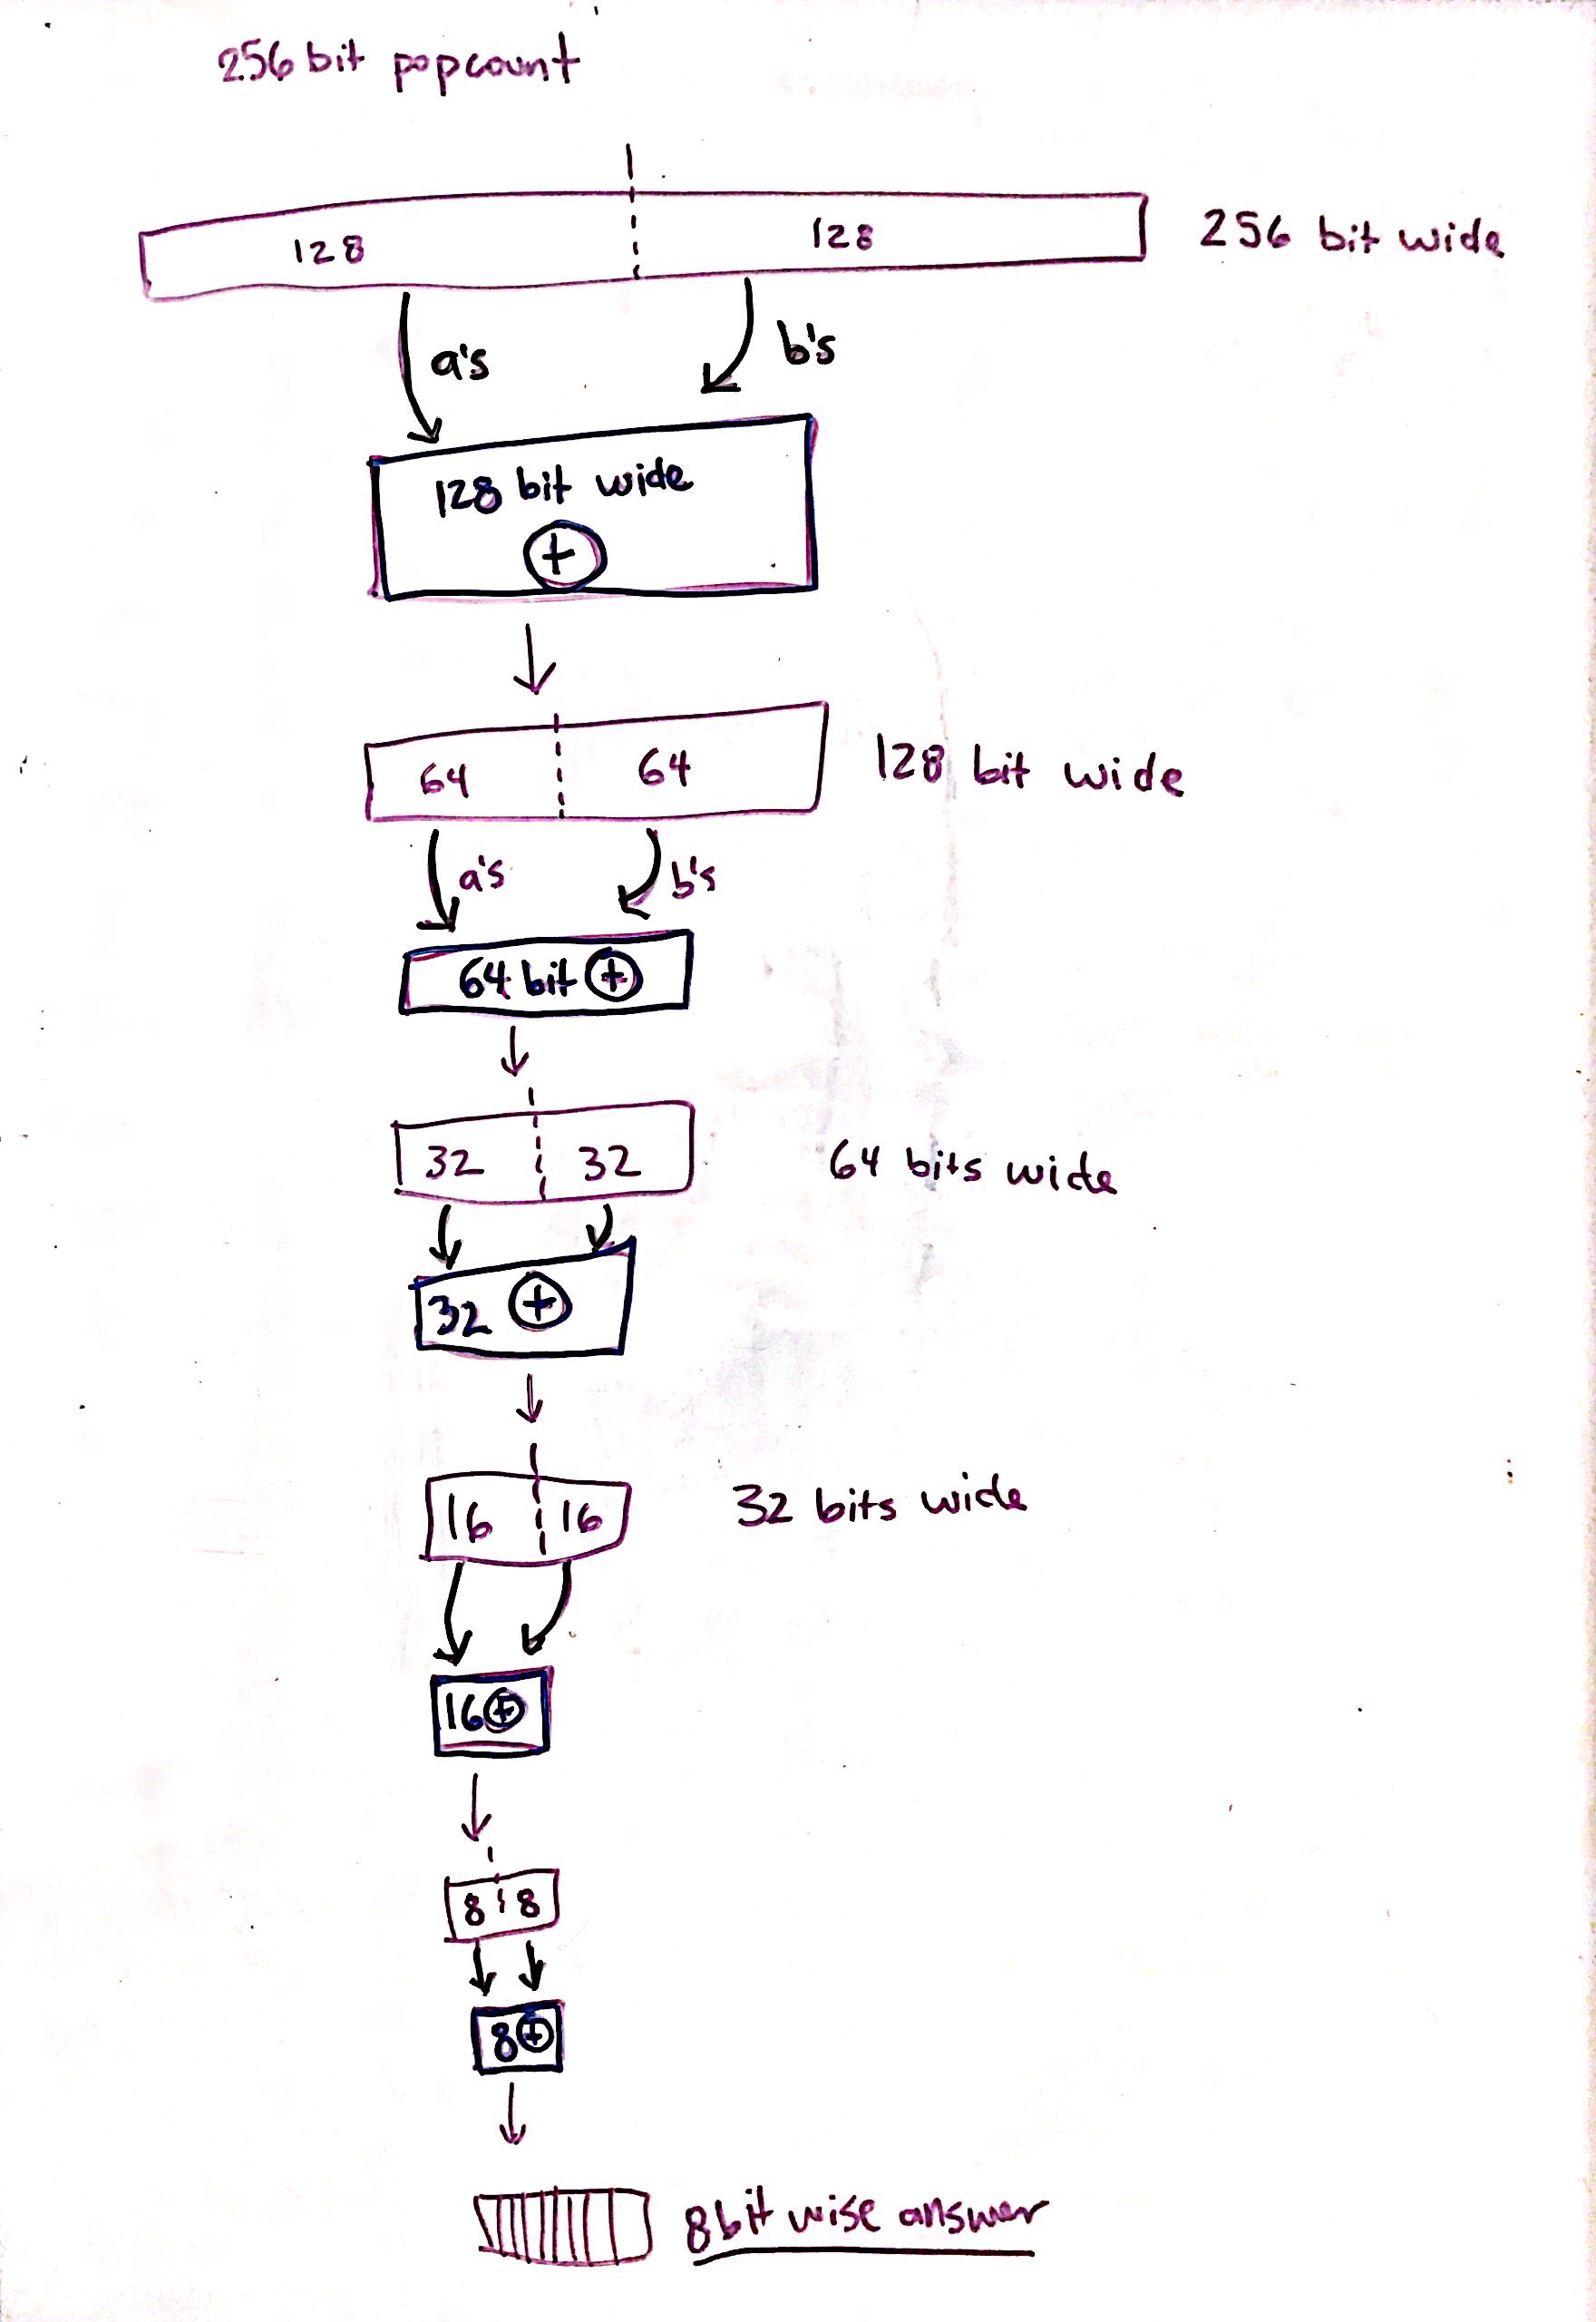 256 bit popcount
128 128 256 bit wide
a's b's
128 bit wide
+
64 64 128 bit wide
a's b's
64 bit +
32 32 64 bits wide
32 +
16 16 32 bits wide
16 +
8 8
8 +
8 bit wise answer